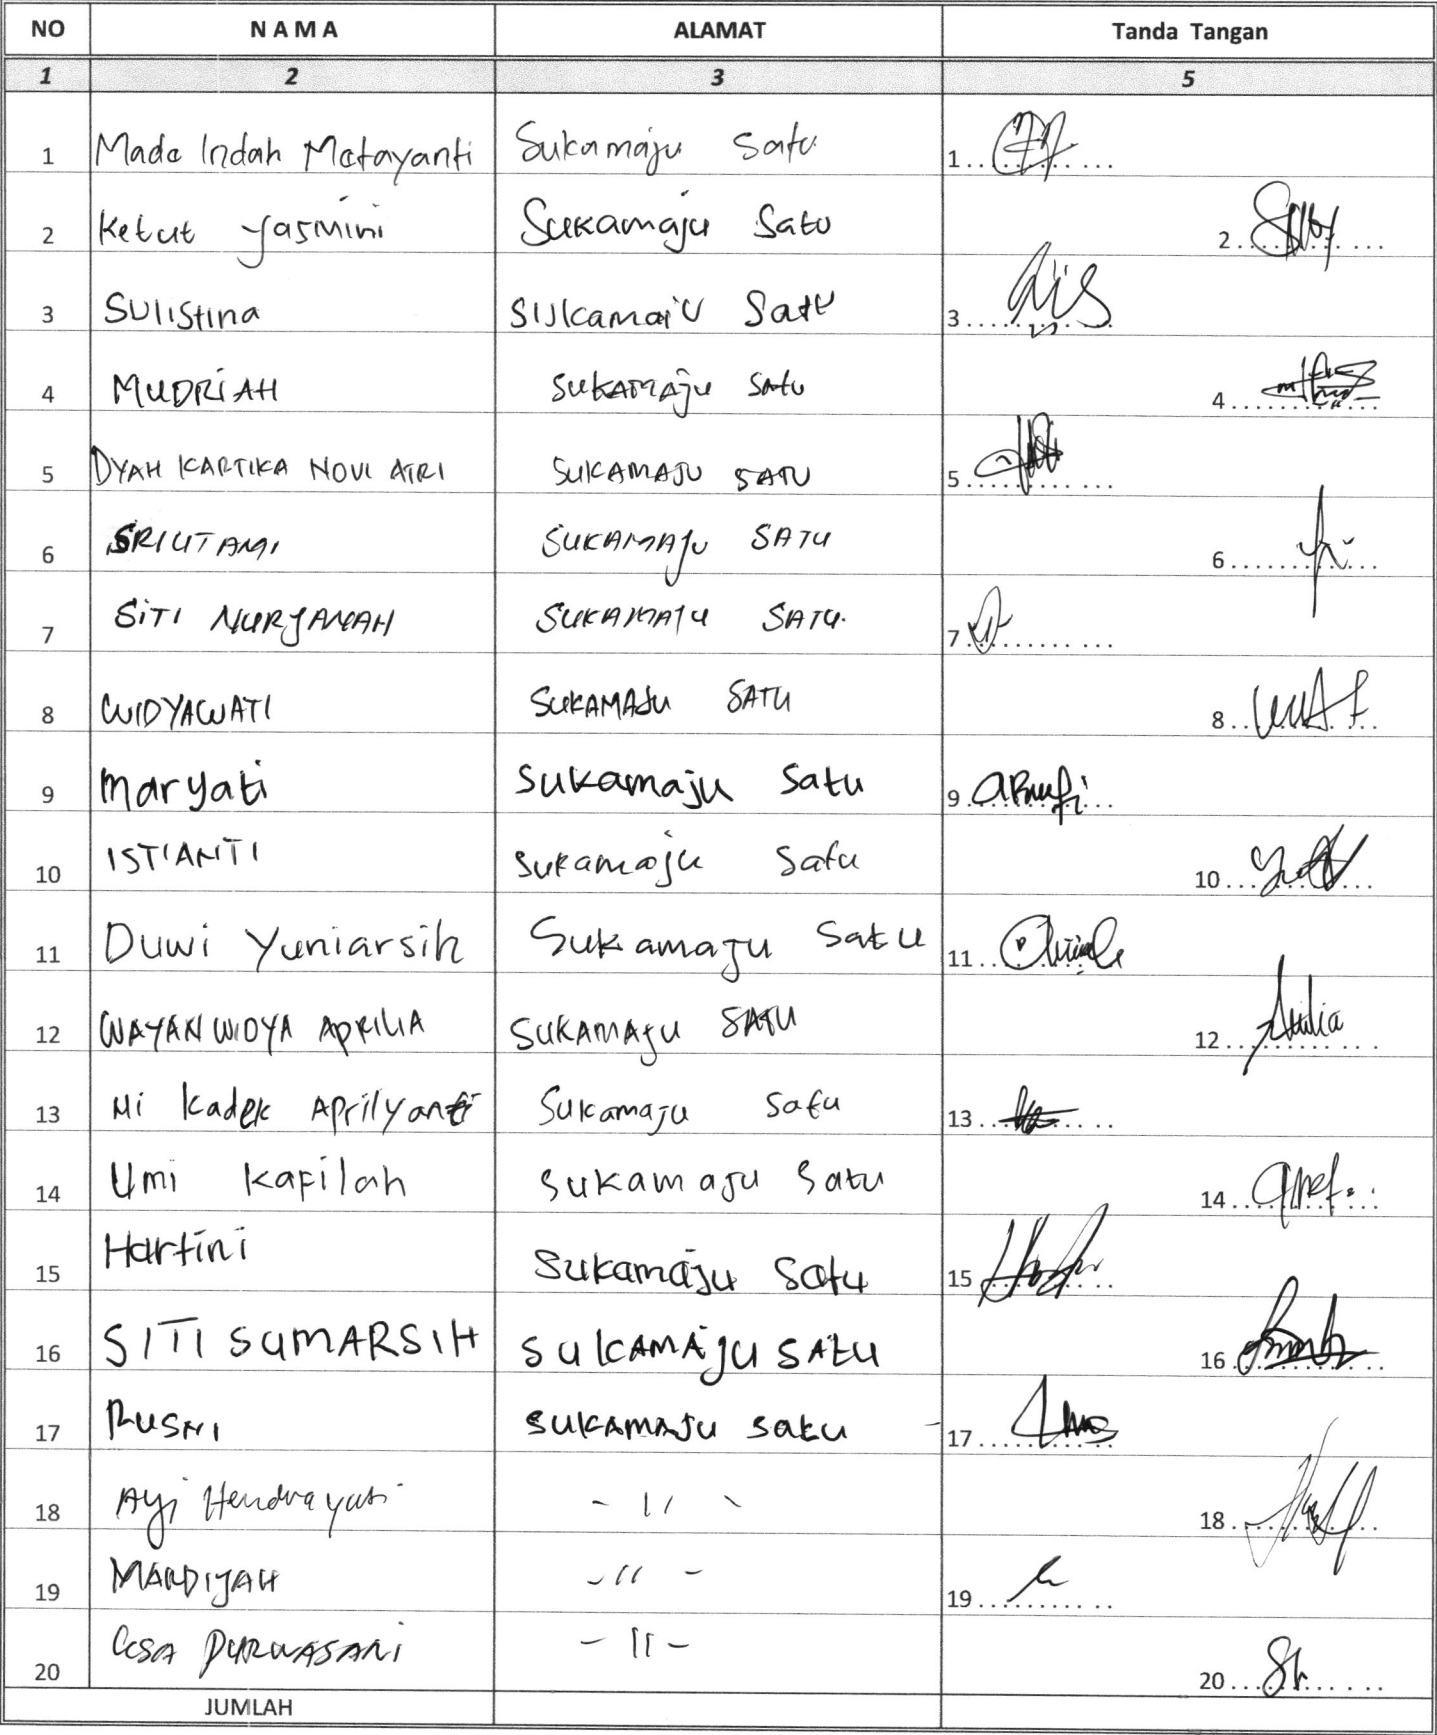 NO N A M A ALAMAT Tanda Tangan
1 2 3 5
1 Made Indah Matayanti Sukamaju Satu 1
2 Ketut Yasmini Sukamaju Satu 2
3 Sulistina Sukamaju Satu 3
4 MUDRiAH SUKAMAju Satu 4
5 DYAH KARTIKA NOVI ATRI SUKAMAJU SATU 5
6 SRIUTAMI SUKAMAJU SATU 6
7 SiTI NURJANAH SUKAMAJU SATU. 7
8 WIDYAWATI SUKAMAJU SATU 8
9 Maryati Sukamaju Satu 9
10 ISTIANTI Sukamaju Satu 10
11 Duwi Yuniarsih Sukamaju Satu 11
12 WAYAN WIDYA APRILIA SUKAMAJU SATU 12
13 Ni Kadek Aprilyanti Sukamaju Satu 13
14 Umi Kafilah Sukamaju Satu 14
15 Hartini Sukamaju Satu 15
16 SITI SUMARSIH SUKAMAJU SAtu 16
17 RUSNI SUKAMAJU Satu 17
18 Ayi Hendrayati - 11 - 18
19 MARDIJAH - 11 - 19
20 PURWASARi - 11 - 20
JUMLAH